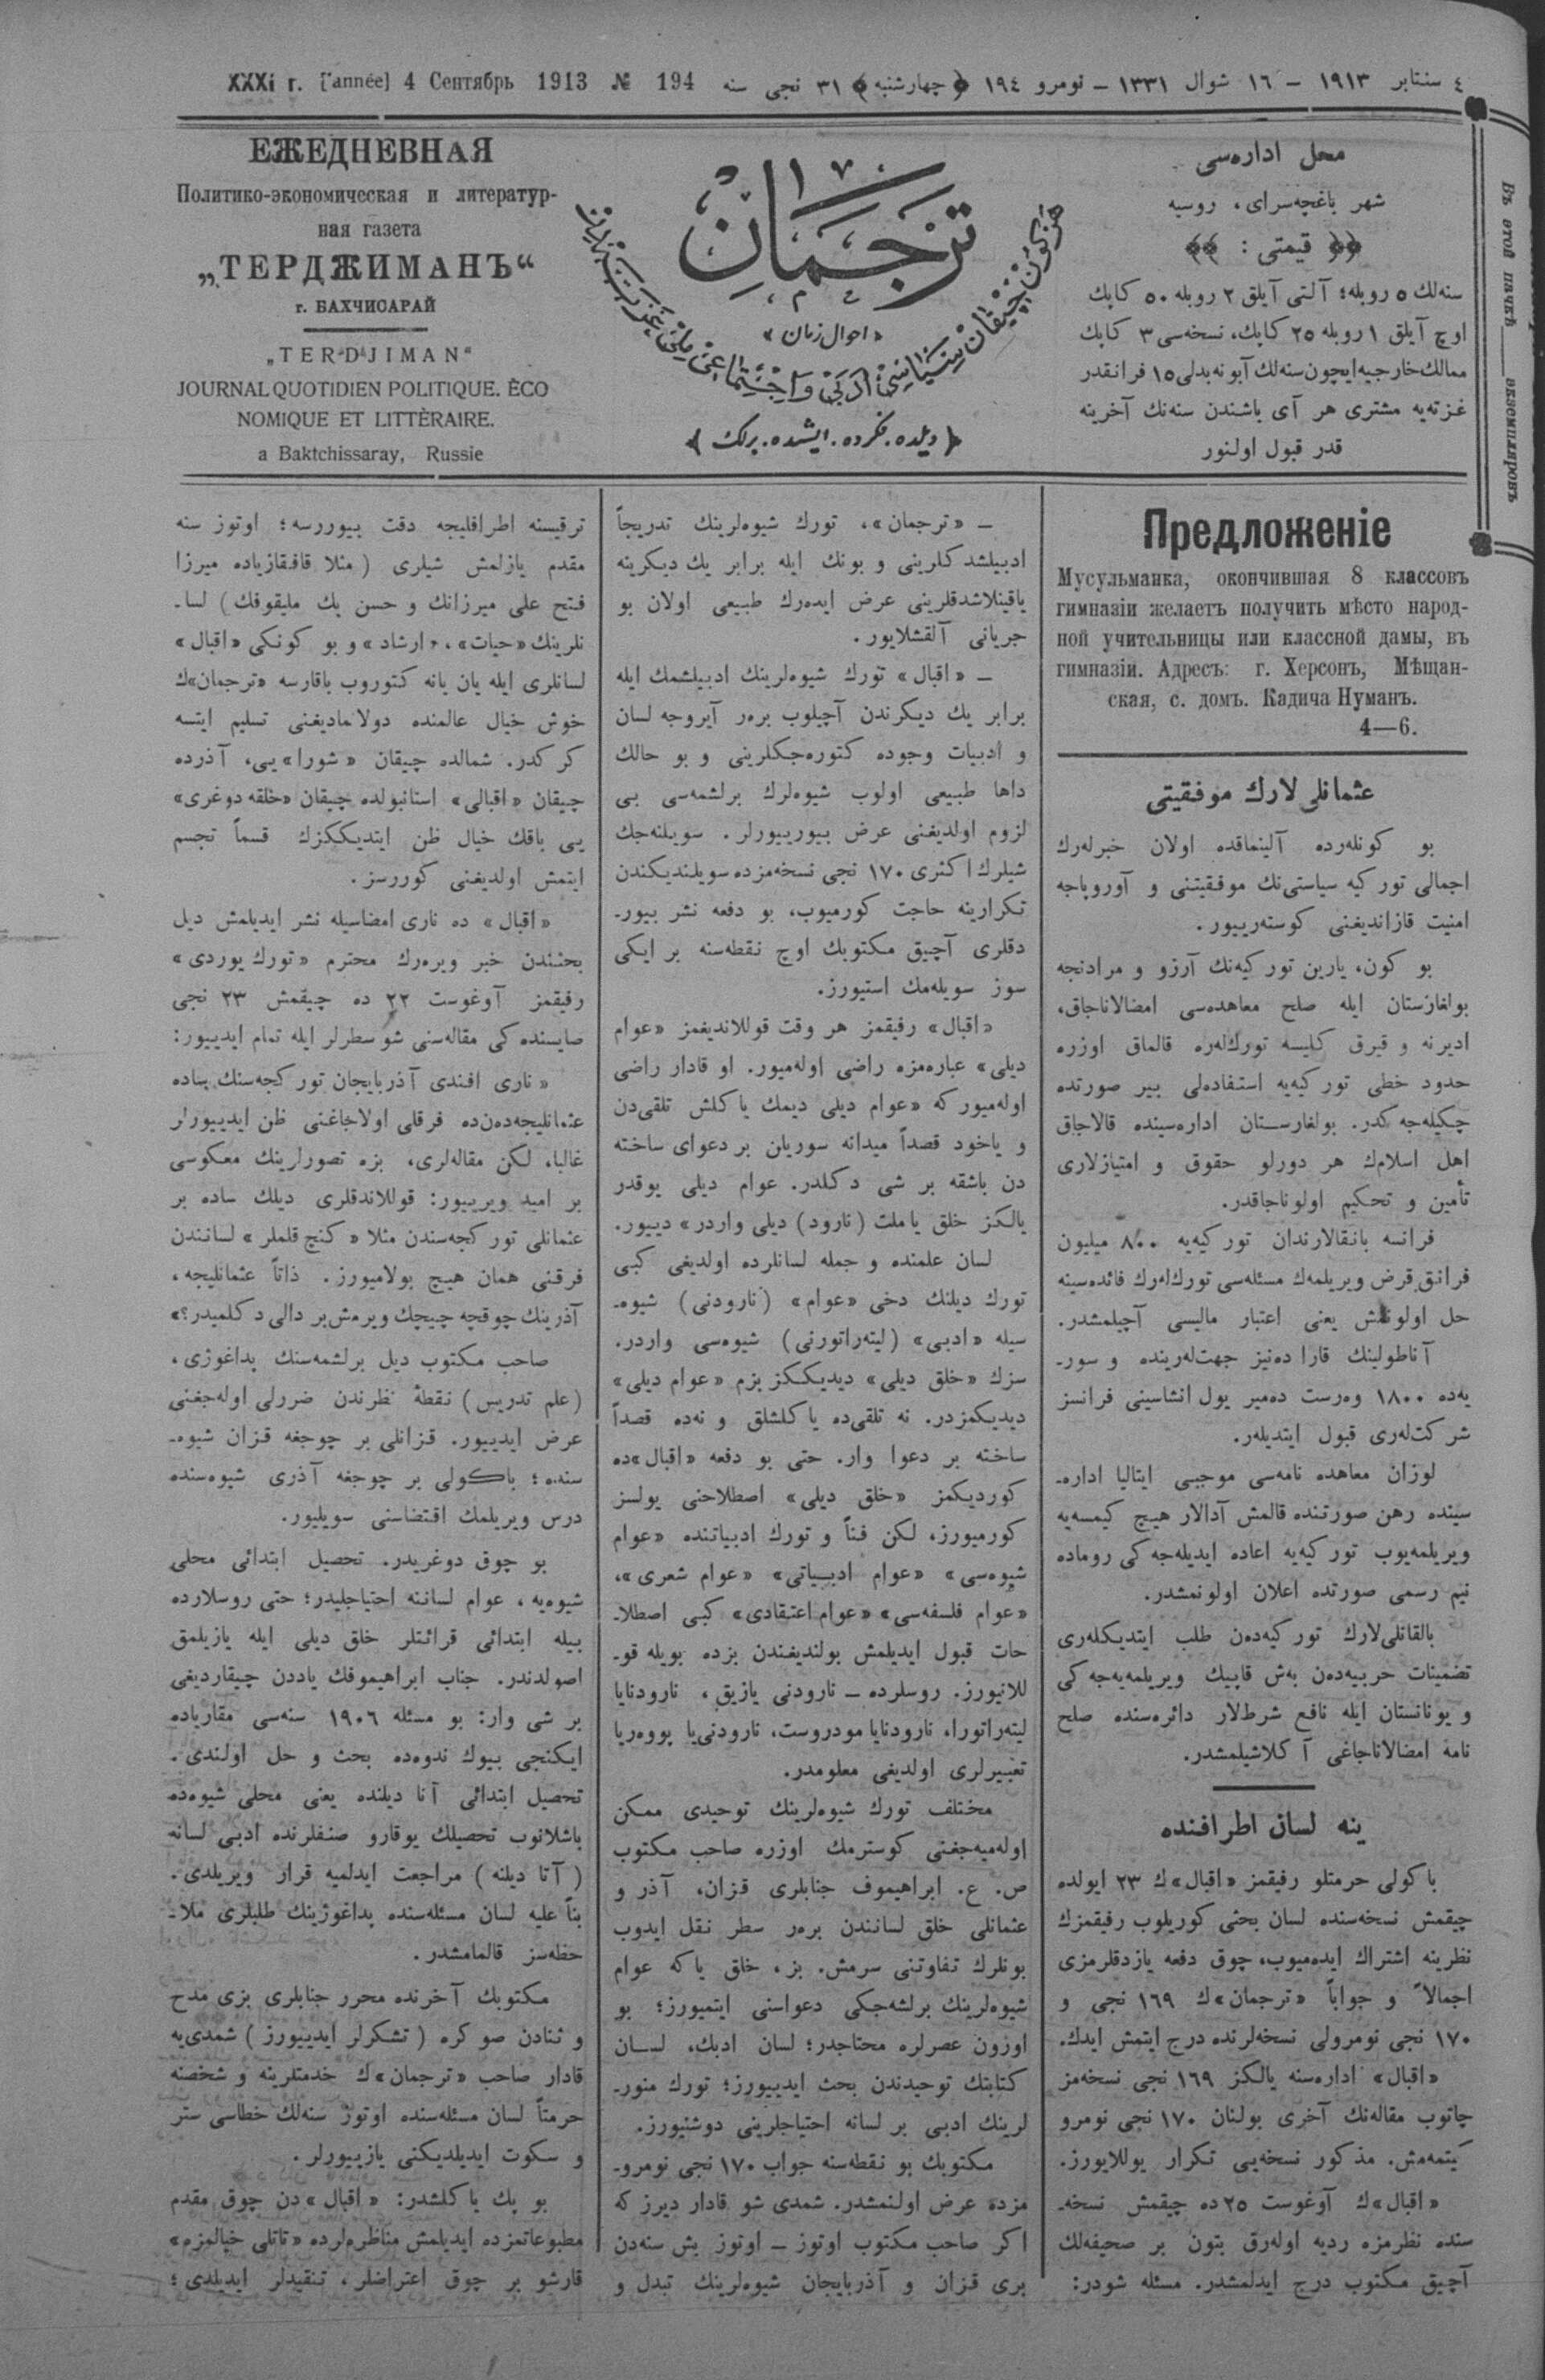 ٤ سنتابر ١٩١٣ – ١٦ شوال ١٣٣١ – نومرو ١٩٤ ﴿چهارشنبه﴾ ٣١ نجی سنه
XXXi г. [année] 4 Сентябрь 1913 № 194
ЕЖЕДНЕВНАЯ
Политико-экономическая и литератур-
ная газета
„ТЕРДЖИМАНЪ“
г. БАХЧИСАРАЙ
„TERDJIMAN“
JOURNAL QUOTIDIEN POLITIQUE. ÈCO
NOMIQUE ET LITTÈRAIRE.
a Baktchissaray, Russie
ترجمان
«احوال زمان»
هر كون چیقان سیاسی، ادبی و اجتماعی ملی غزته‌در
﴿ دیلده. فكرده. ایشده. برلك ﴾
محل اداره‌سی
شهر باغچه‌سرای، روسیه
قیمتی :
سنه‌لك ٥ روبله؛ آلتی آیلق ٢ روبله ٥٠ كاپك
اوچ آیلق ١ روبله ٢٥ كاپك، نسخه‌سی ٣ كاپك
ممالك خارجیه ایچون سنه‌لك آبونه بدلی ١٥ فرانقدر
غزته‌یه مشتری هر آی باشندن سنه‌نك آخرینه
قدر قبول اولنور
Въ этой пачкѣ ____ экземпляровъ
Предложеніе
Мусульманка, окончившая 8 классовъ
гимназіи желаетъ получить мѣсто народ-
ной учительницы или классной дамы, въ
гимназіи. Адресъ: г. Херсонъ, Мѣщан-
ская, с. домъ. Кадича Нуманъ.
4—6.
عثمانلی لارك موفقیتی
بو كونله‌رده آلینماقده اولان خبرله‌رك
اجمالی توركیه سیاستی‌نك موفقیتنی و آوروپاجه
امنیت قازاندیغنی كوسته‌رییور.
بو كون، یارین توركیه‌نك آرزو و مرادنجه
بولغارستان ایله صلح معاهده‌سی امضالاناجاق،
ادیرنه و قیرق كلیسه تورك‌له‌ره قالماق اوزره
حدود خطی توركیه‌یه استفاده‌لی بیر صورتده
چكیله‌جه‌كدر. بولغارستان اداره‌سینده قالاجاق
اهل اسلامك هر دورلو حقوق و امتیازلاری
تأمین و تحكیم اولوناجاقدر.
فرانسه بانقالارندان توركیه‌یه ٨٠٠ میلیون
فرانق قرض ویریلمه‌ك مسئله‌سی تورك‌له‌رك فائده‌سینه
حل اولونمش یعنی اعتبار مالیسی آچیلمشدر.
آناطولینك قارا ده‌نیز جهت‌له‌رینده و سور-
یه‌ده ١٨٠٠ وه‌رست ده‌میر یول انشاسینی فرانسز
شركت‌له‌ری قبول ایتدیله‌ر.
لوزان معاهده نامه‌سی موجبی ایتالیا اداره-
سینده رهن صورتنده قالمش آدالار هیچ كیمسه‌یه
ویریلمه‌یوب توركیه‌یه اعاده ایدیله‌جه‌كی روماده
نیم رسمی صورتده اعلان اولونمشدر.
بالقانلی‌لارك توركیه‌دن طلب ایتدیكله‌ری
تضمینات حربیه‌دن به‌ش قاپیك ویریلمه‌یه‌جه‌كی
و یونانستان ایله نافع شرطلار دائره‌سنده صلح
نامه امضالاناجاغی آكلاشیلمشدر.
ینه لسان اطرافنده
باكولی حرمتلو رفیقمز «اقبال»ك ٢٣ ایولده
چیقمش نسخه‌سنده لسان بحثی كوریلوب رفیقمزك
نظرینه اشتراك ایده‌میوب، چوق دفعه یازدقلرمزی
اجمالاً و جواباً «ترجمان»ك ١٦٩ نجی و
١٧٠ نجی نومرولی نسخه‌لرنده درج ایتمش ایدك.
«اقبال» اداره‌سنه یالكز ١٦٩ نجی نسخه‌مز
چاتوب مقاله‌نك آخری بولنان ١٧٠ نجی نومرو
كیتمه‌مش. مذكور نسخه‌یی تكرار یوللایورز.
«اقبال»ك آوغوست ٢٥ده چیقمش نسخه-
سنده نظرمزه ردیه اوله‌رق بتون بر صحیفه‌لك
آچیق مكتوب درج ایدلمشدر. مسئله شودر:
– «ترجمان»، تورك شیوه‌لرینك تدریجاً
ادبیلشدكلرینی و بونك ایله برابر یك دیكرینه
یاقینلاشدقلرینی عرض ایده‌رك طبیعی اولان بو
جریانی آلقشلایور.
– «اقبال» تورك شیوه‌لرینك ادبیلشمك ایله
برابر یك دیكرندن آچیلوب برەر آیروجه لسان
و ادبیات وجوده كتوره‌جكلرینی و بو حالك
داها طبیعی اولوب شیوه‌لرك برلشمه‌سی بی
لزوم اولدیغنی عرض بیورییورلر. سویلنه‌جك
شیلرك اكثری ١٧٠ نجی نسخه‌مزده سویلندیكندن
تكرارینه حاجت كورمیوب، بو دفعه نشر بیور-
دقلری آچیق مكتوبك اوچ نقطه‌سنه بر ایكی
سوز سویله‌مك استیورز.
«اقبال» رفیقمز هر وقت قوللاندیغمز «عوام
دیلی» عباره‌مزه راضی اوله‌میور. او قادار راضی
اوله‌میور كه «عوام دیلی دیمك یاكلش تلقی‌دن
و یاخود قصداً میدانه سوریلن بر دعوای ساخته
دن باشقه بر شی دكلدر. عوام دیلی یوقدر
یالكز خلق یا ملت (نارود) دیلی واردر» دییور.
لسان علمنده و جمله لسانلرده اولدیغی كبی
تورك دیلنك دخی «عوام» (نارودنی) شیوه-
سیله «ادبی» (لیته‌راتورنی) شیوه‌سی واردر.
سزك «خلق دیلی» دیدیككز بزم «عوام دیلی»
دیدیكمزدر. نه تلقی‌ده یاكلشلق و نه‌ده قصداً
ساخته بر دعوا وار. حتی بو دفعه «اقبال»ده
كوردیكمز «خلق دیلی» اصطلاحنی یولسز
كورمیورز، لكن فناً و تورك ادبیاتنده «عوام
شیوه‌سی» «عوام ادبیاتی» «عوام شعری»،
«عوام فلسفه‌سی» «عوام اعتقادی» كبی اصطلا-
حات قبول ایدیلمش بولندیغندن بزده بویله قو-
للانیورز. روسلرده – نارودنی یازیق، نارودنایا
لیته‌راتورا، نارودنایا مودروست، نارودنی‌یا پووه‌ریا
تعبیرلری اولدیغی معلومدر.
مختلف تورك شیوه‌لرینك توحیدی ممكن
اوله‌میه‌جغنی كوسترمك اوزره صاحب مكتوب
ص. ع. ابراهیموف جنابلری قزان، آذر و
عثمانلی خلق لسانندن برەر سطر نقل ایدوب
بونلرك تفاوتنی سرمش. بز، خلق یا كه عوام
شیوه‌لرینك برلشه‌جكی دعواسنی ایتمیورز؛ بو
اوزون عصرلره محتاجدر؛ لسان ادبك، لسان
كتابتك توحیدندن بحث ایدییورز؛ تورك منور-
لرینك ادبی بر لسانه احتیاجلرینی دوشنیورز.
مكتوبك بو نقطه‌سنه جواب ١٧٠ نجی نومرو-
مزده عرض اولنمشدر. شمدی شو قادار دیرز كه
اكر صاحب مكتوب اوتوز – اوتوز بش سنه‌دن
بری قزان و آذربایجان شیوه‌لرینك تبدل و
ترقیسنه اطرافلیجه دقت بیوررسه؛ اوتوز سنه
مقدم یازلمش شیلری (مثلا قافقازیاده میرزا
فتح علی میرزانك و حسن بك ملیقوفك) لسا-
نلرینك «حیات»، «ارشاد» و بو كونكی «اقبال»
لسانلری ایله یان یانه كتوروب باقارسه «ترجمان»ك
خوش خیال عالمنده دولاماديغنی تسلیم ایتسه
كركدر. شمالده چیقان «شورا»یی، آذرده
چیقان «اقبالی» استانبولده چیقان «خلقه دوغری»
یی باقك خیال ظن ایتدیككزك قسماً تجسم
ایتمش اولدیغنی كوررسز.
«اقبال» ده ناری امضاسیله نشر ایدیلمش دیل
بحثندن خبر ویره‌رك محترم «تورك یوردی»
رفیقمز آوغوست ٢٢ ده چیقمش ٢٣ نجی
صایسنده‌كی مقاله‌سنی شو سطرلر ایله تمام ایدییور:
«ناری افندی آذربایجان توركجه‌سنك ساده
عثمانلیجه‌دن‌ده فرقلی اولاجاغنی ظن ایدییورلر
غالبا، لكن مقاله‌لری، بزه تصورلرینك معكوسی
بر امید ویرییور: قوللاندقلری دیلك ساده بر
عثمانلی توركجه‌سندن مثلا «كنج قلملر» لسانندن
فرقنی همان هیچ بولامیورز. ذاتاً عثمانلیجه،
آذرینك چوقچه چیچك ویرمش بر دالی دكلمیدر؟»
صاحب مكتوب دیل برلشمه‌سنك پداغوژی،
(علم تدریس) نقطۀ نظرندن ضررلی اوله‌جغنی
عرض ایدییور. قزانلی بر چوجغه قزان شیوه-
سنده؛ باكولی بر چوجغه آذری شیوه‌سنده
درس ویریلمك اقتضاسنی سویلیور.
بو چوق دوغریدر. تحصیل ابتدائی محلی
شیوه‌یه، عوام لساننه احتیاجلیدر؛ حتی روسلارده
بیله ابتدائی قرائتلر خلق دیلی ایله یازیلمق
اصولدندر. جناب ابراهیموفك یاددن چیقاردیغی
بر شی وار: بو مسئله ١٩٠٦ سنه‌سی مقاریاده
ایكنجی بیوك ندوه‌ده بحث و حل اولندی.
تحصیل ابتدائی آنا دیلنده یعنی محلی شیوه‌ده
باشلانوب تحصیلك یوقارو صنفلرنده ادبی لسانه
(آتا دیلنه) مراجعت ایدلمیه قرار ویریلدی.
بناً علیه لسان مسئله‌سنده پداغوژینك طلبلری ملا-
حظه‌سز قالمامشدر.
مكتوبك آخرنده محرر جنابلری بزی مدح
و ثنادن صوكره (تشكرلر ایدییورز) شمدی‌یه
قادار صاحب «ترجمان»ك خدمتلرینه و شخصنه
حرمتاً لسان مسئله‌سنده اوتوز سنه‌لك خطاسی ستر
و سكوت ایدیلدیكنی یازییورلر.
بو پك یاكلشدر: «اقبال»دن چوق مقدم
مطبوعاتمزده ایدیلمش مناظره‌لرده «تاتلی خیالمزه»
قارشو بر چوق اعتراضلر، تنقیدلر ایدیلدی؛